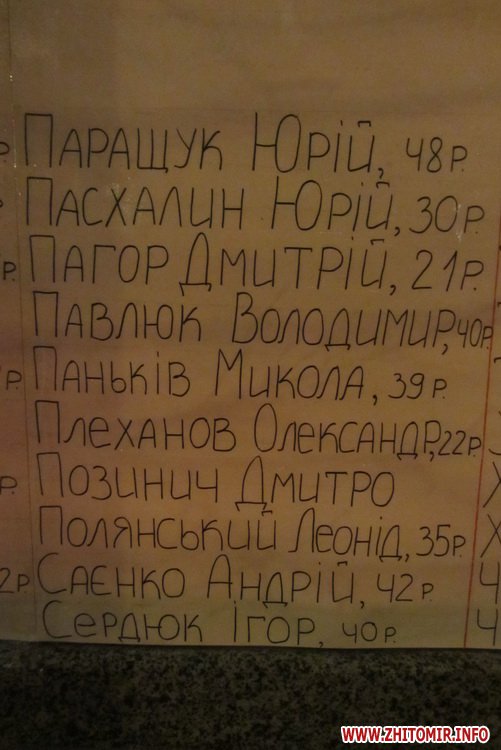 ПАРАЩУК ЮРІЙ, 48 Р.
ПАСХАЛИН ЮРІЙ, 30 Р.
ПАГОР ДМИТРІЙ, 21 Р.
ПАВЛЮК ВОЛОДИМИР, 40 Р.
ПАНЬКІВ МИКОЛА, 39 Р.
ПЛЕХАНОВ ОЛЕКСАНДР, 22 Р.
ПОЗИНИЧ ДМИТРО
ПОЛЯНСЬКИЙ ЛЕОНІД, 35 Р.
САЄНКО АНДРІЙ, 42 Р.
СЕРДЮК ІГОР, 40 Р.
WWW.ZHITOMIR.INFO